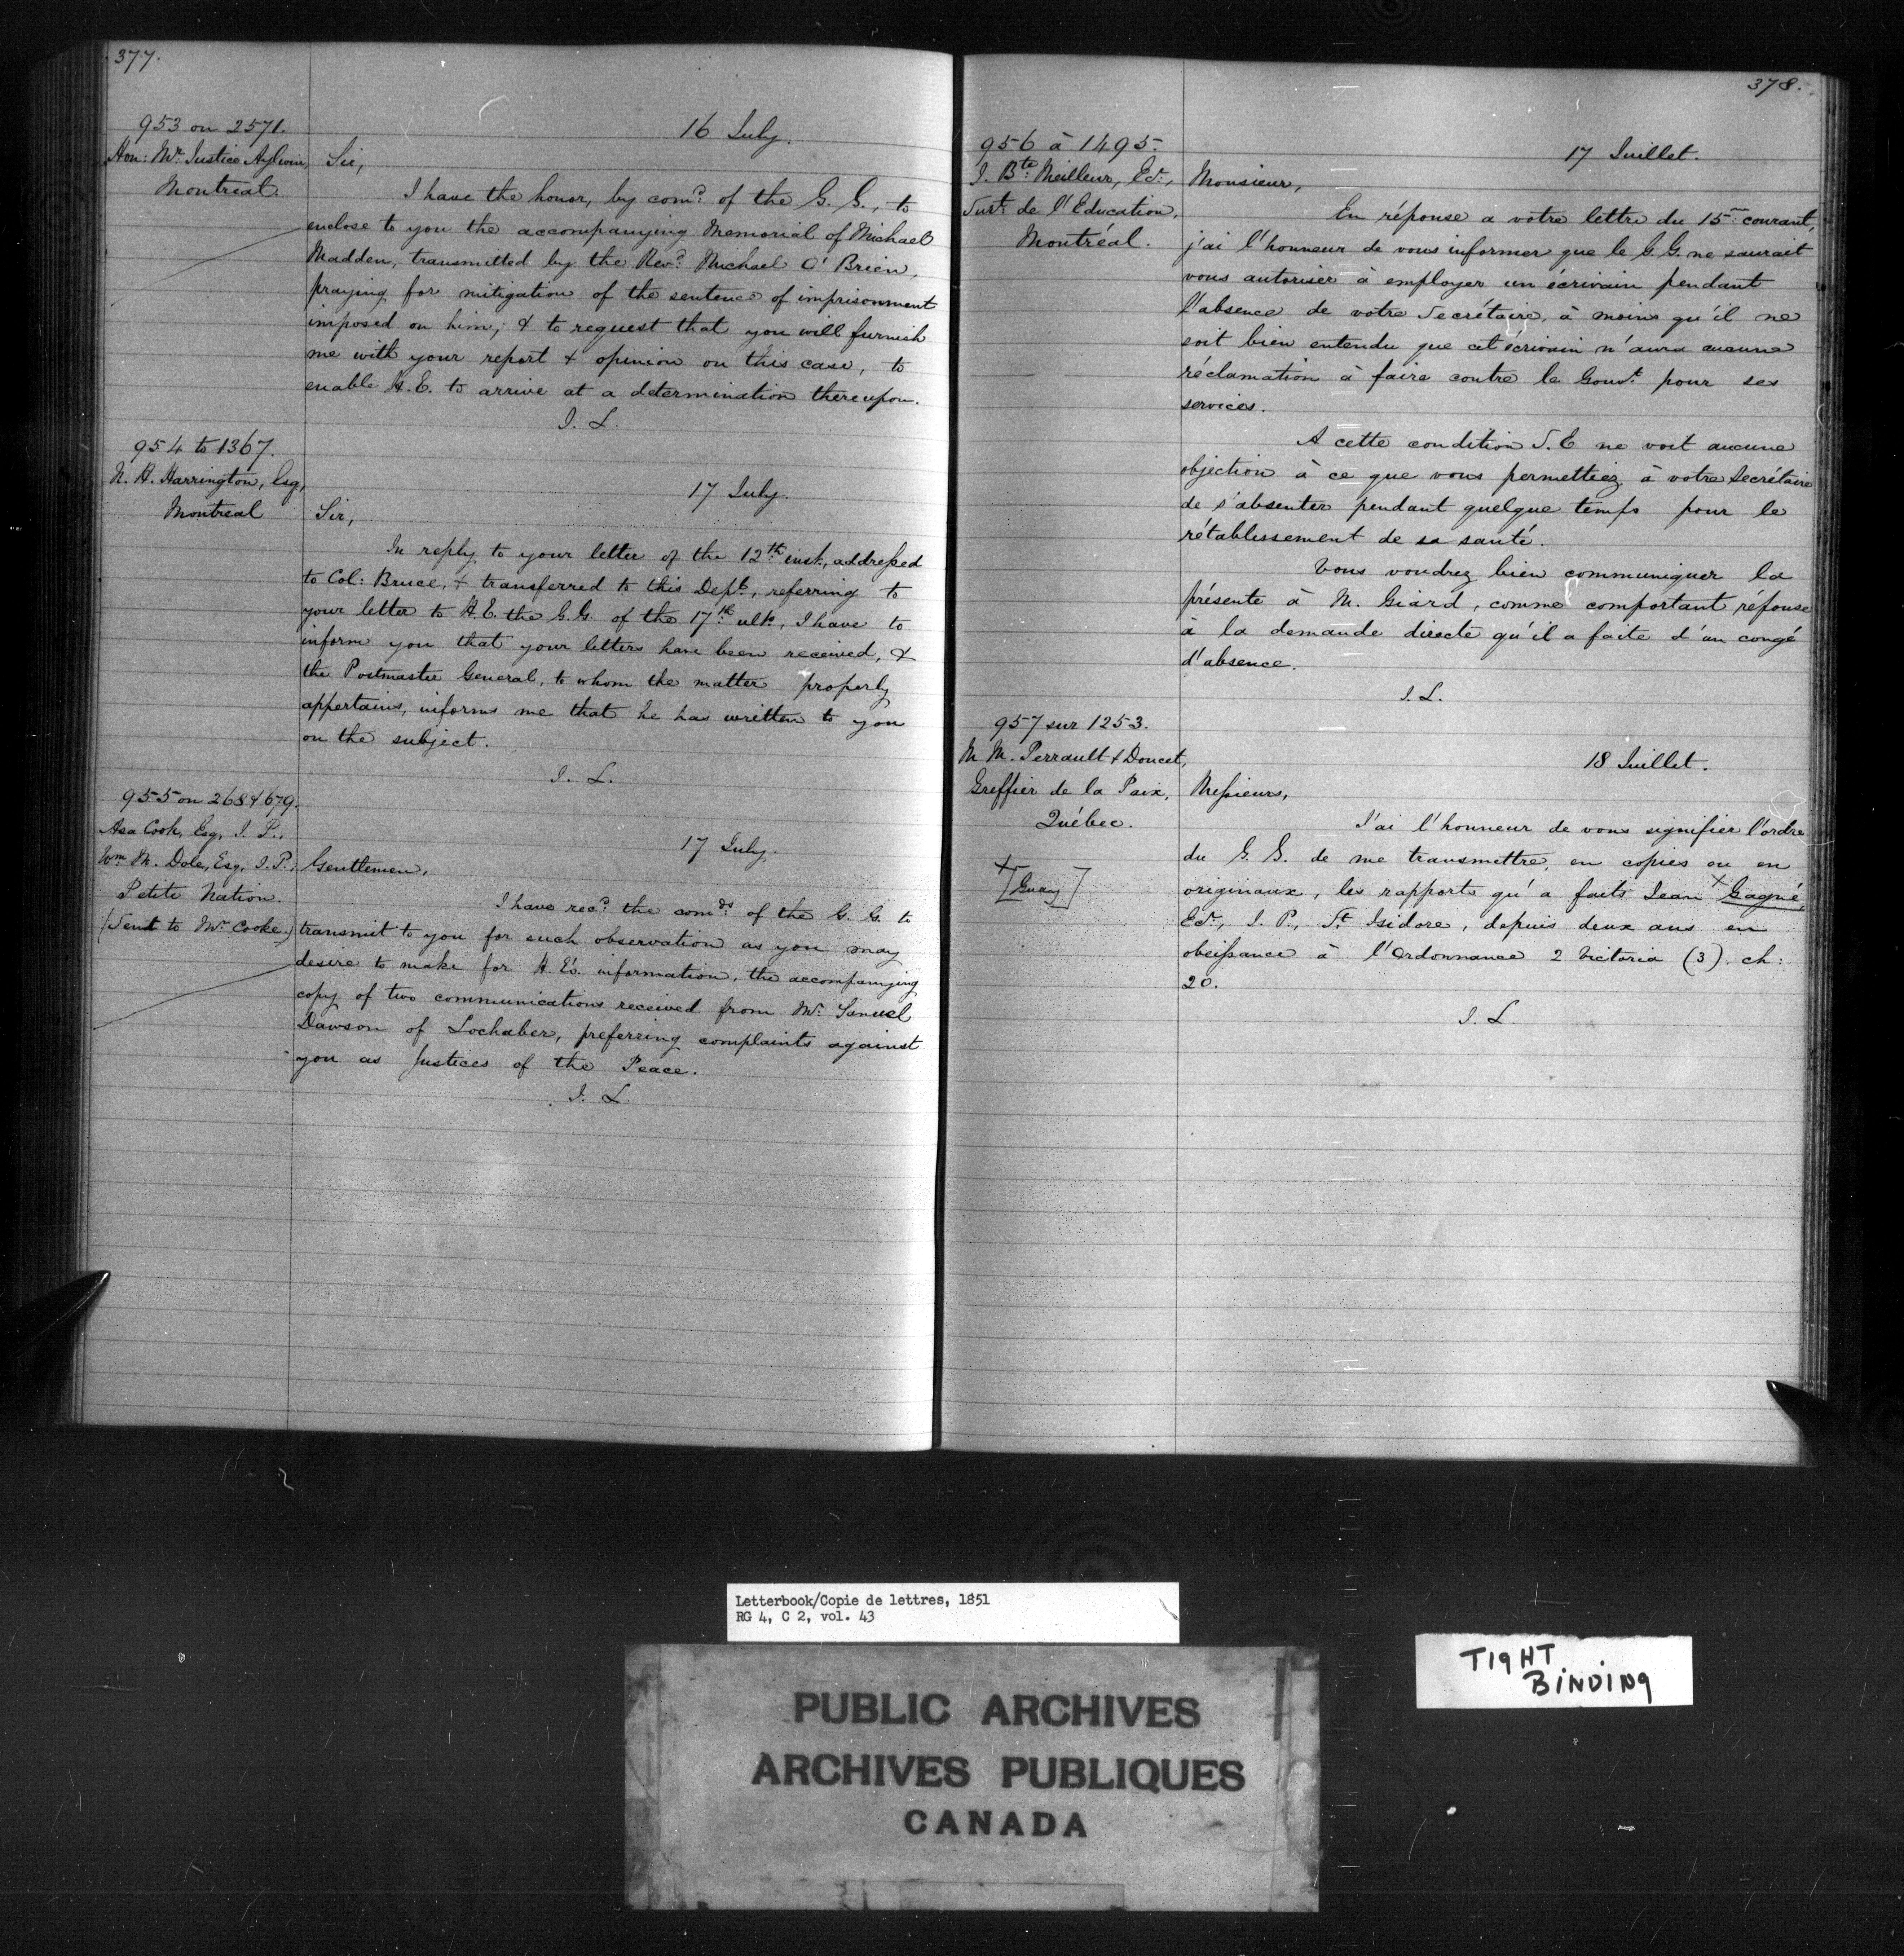 377.
953 on 2571.
Hon: Mr. Justice Aylwin,
Montreal.
16 July.
Sir,
I have the honor, by comd. of the G. G., to
enclose to you the accompanying Memorial of Michael
Madden, transmitted by the Revd. Michael O'Brien,
praying for mitigation of the sentence of imprisonment
imposed on him; & to request that you will furnish
me with your report & opinion on this case, to
enable H.E. to arrive at a determination thereupon.
J. L.
954 to 1367.
N. H. Harrington, Esq,
Montreal
17 July.
Sir,
In reply to your letter of the 12th. inst., addressed
to Col: Bruce, & transferred to this Dept., referring to
your letter to H.E. the G.G. of the 17th. ulto., I have to
inform you that your letters have been received, &
the Postmaster General, to whom the matter properly
appertains, informs me that he has written to you
on the subject.
J. L.
955 on 268 & 679.
Asa Cook, Esq, J. P.,
Wm. M. Dole, Esq, J.P.,
Petite Nation.
(Sent to Mr. Cooke.)
17 July.
Gentlemen,
I have recd. the comds. of the G. G. to
transmit to you for such observation as you may
desire to make for H. E's. information, the accompanying
copy of two communications received from Mr. Samuel
Dawson of Lochaber, preferring complaints against
you as Justices of the Peace.
J. L.
378.
956 à 1495.
J. Bte. Meilleur, Ecr.,
Surt. de l'Education,
Montréal.
17 Juillet.
Monsieur,
En réponse a votre lettre du 15me. courant,
j'ai l'honneur de vous informer que le G.G. ne saurait
vous autoriser à employer un écrivain pendant
l'absence de votre Secrétaire, à moins qu'il ne
soit bien entendu que cet écrivain n'aura aucune
réclamation à faire contre le Gouvt. pour ses
services.
A cette condition S.E ne voit aucune
objection à ce que vous permettiez à votre Secrétaire
de s'absenter pendant quelque temps pour le
rétablissement de sa santé.
Vous voudrez bien communiquer la
présente à M. Giard, comme comportant réponse
à la demande directe qu'il a faite d'un congé
d'absence.
J. L.
957 sur 1253.
M M. Perrault & Doucet,
Greffier de la Paix,
Québec.
18 Juillet.
Messieurs,
J'ai l'honneur de vous signifier l'ordre
du G. G. de me transmettre, en copies ou en
originaux, les rapports qu'a faits Jean × Gagné,
Ecr., J. P., St. Isidore, depuis deux ans en
obéissance à l'Ordonnance 2 Victoria (3). ch:
20.
× [Guay]
J. L.
Letterbook/Copie de lettres, 1851
RG 4, C 2, vol. 43
TIGHT
BINDING
PUBLIC ARCHIVES
ARCHIVES PUBLIQUES
CANADA